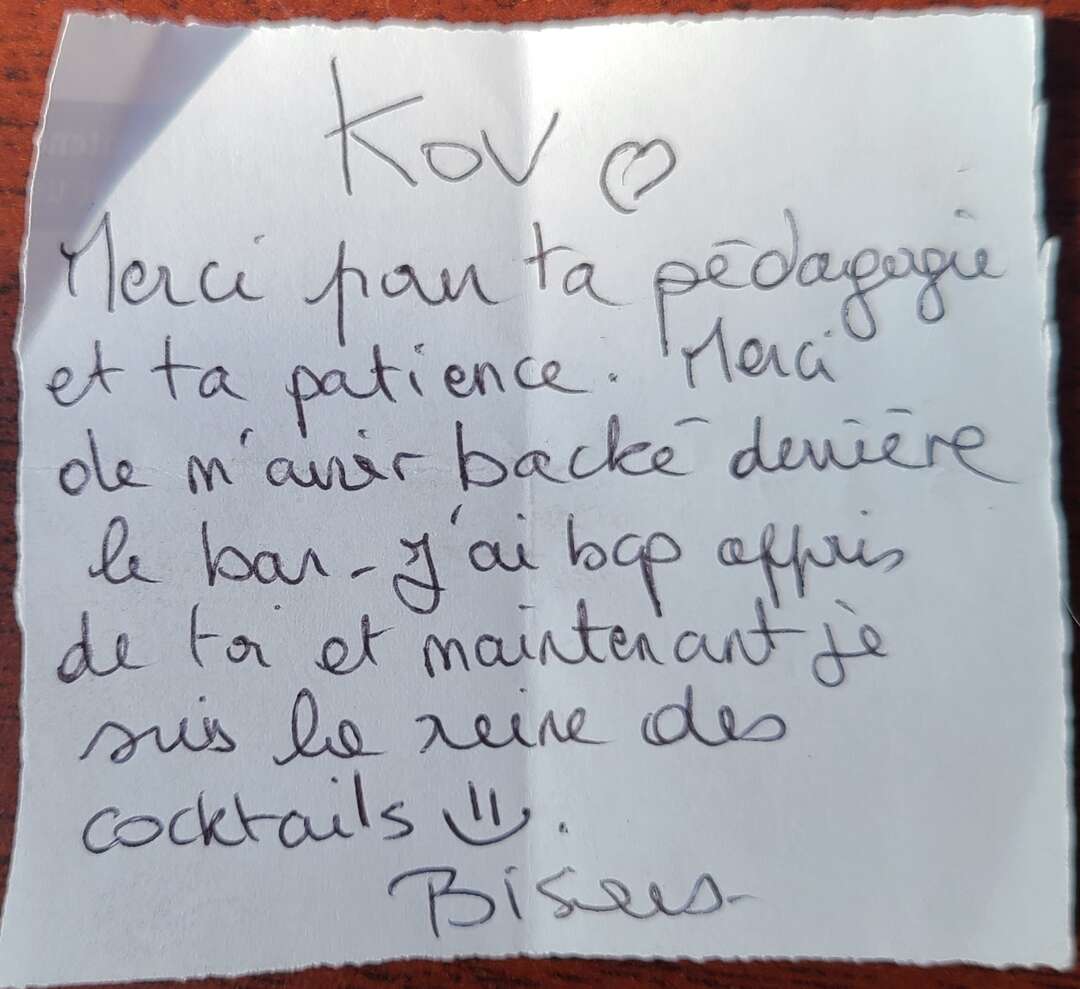 Kov ♡
Merci pour ta pédagogie
et ta patience. Merci
de m'avoir backé derrière
le bar - J'ai bcp appris
de toi et maintenant je
suis la reine des
cocktails =).
Bisous